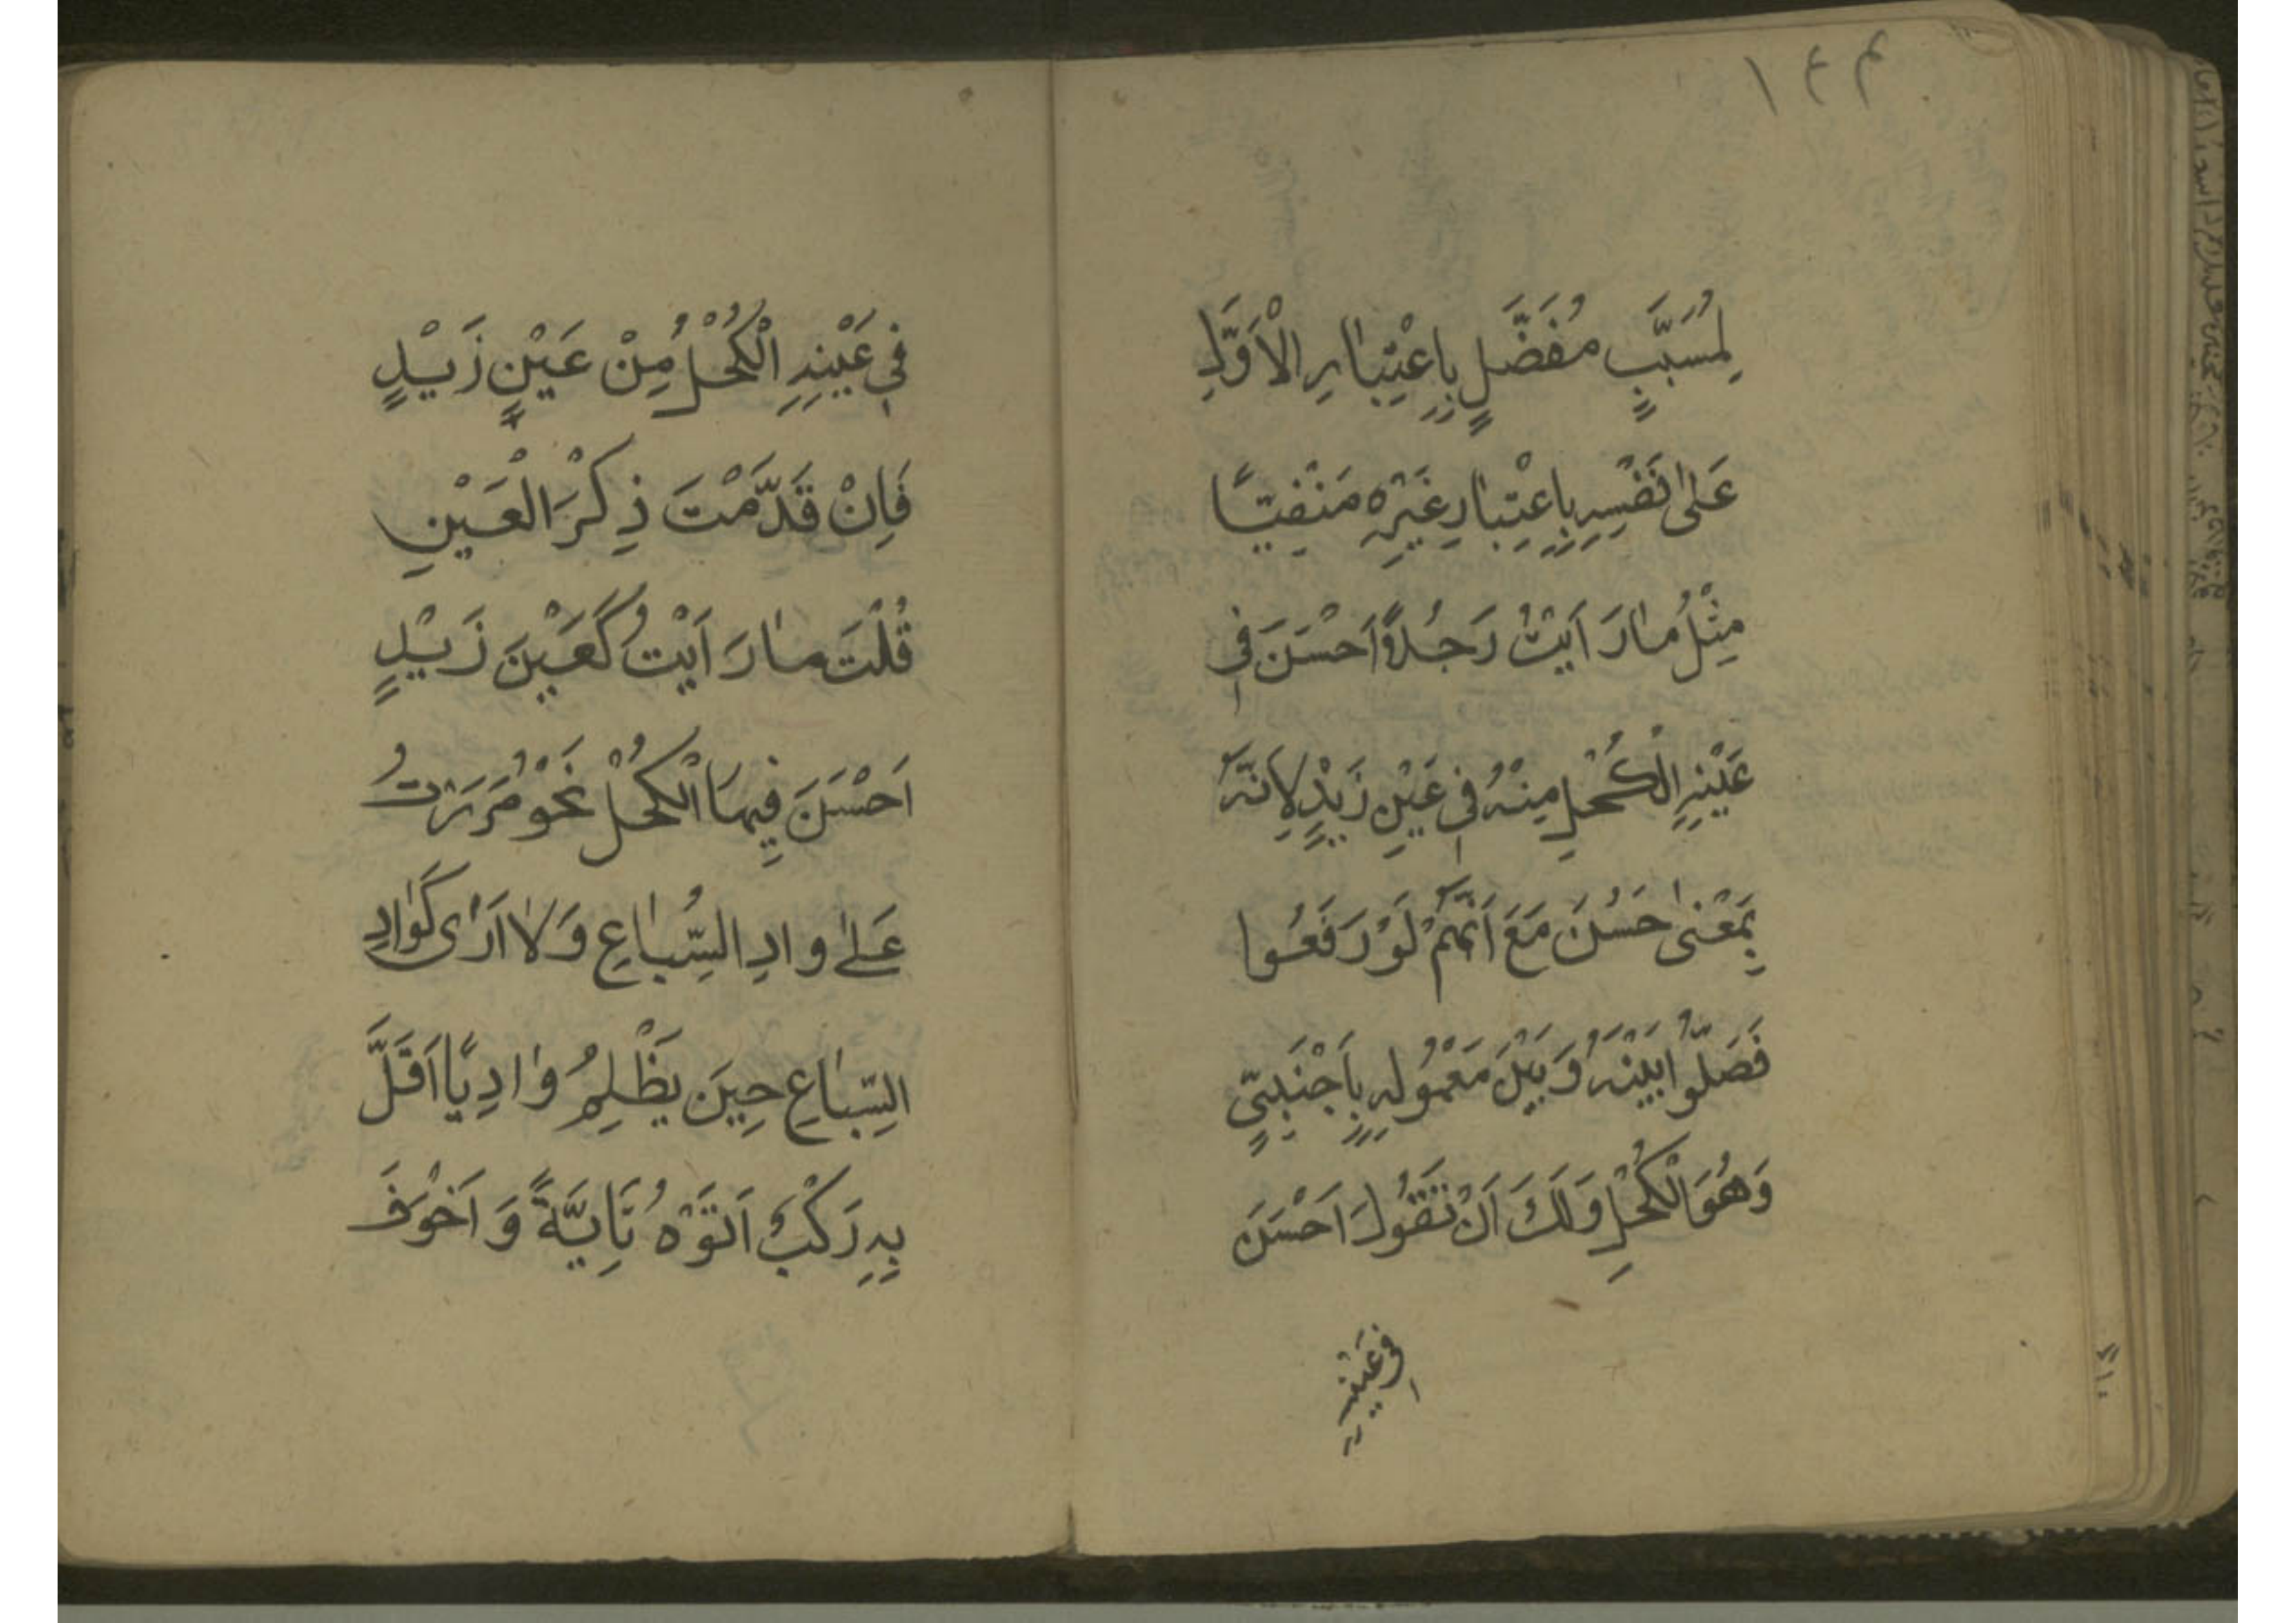 ١٤٣
لِمُسَبَّبٍ مُفَضَّلٍ بِاِعْتِبَارِ الْاَوَّلِ
عَلٰى نَفْسِهِ بِاِعْتِبَارِ غَيْرِهِ مَنْفِيًّا
مِثْلُ مٰارَ اَيْتُ رَجُلًا اَحْسَنَ فِي
عَيْنِهِ الْكُحْلِ مِنْهُ فِي عَيْنِ زَيْدٍ لِاَنَّهُ
بِمَعْنٰى حَسُنَ مَعَ اَنَّهُمْ لَوْ رَفَعُوا
فَصَلُّوا بَيْنَهُ وَبَيْنَ مَعْمُولِهِ بِاَجْنَبِىٍّ
وَهُوَ الْكُحْلِ وَلَكَ اَنْ تَقُولَ اَحْسَنَ
فِي عَيْنِهِ
فِي عَيْنِهِ الْكُحْلُ مِنْ عَيْنٍ زَيْدٍ
فَاِنْ قَدَّمْتَ ذِكْرَ الْعَيْنِ
قُلْتَ مٰا رَ اَيْتُ كَعَيْنَ زَيْدٍ
اَحْسَنَ فِيهَا الْكُحْلُ نَحْوُ مَرَرْتُ
عَلٰى وادِ السِّبٰاعِ وَلٰا اَرٰى كَوٰادِ
السِّبٰاعِ حِينَ يَظْلِمُ وٰادِيًا اَقَلَّ
بِهِ رَكْبٌ اَتَوْهُ تَاِيَّةً وَ اَخْوَفَ